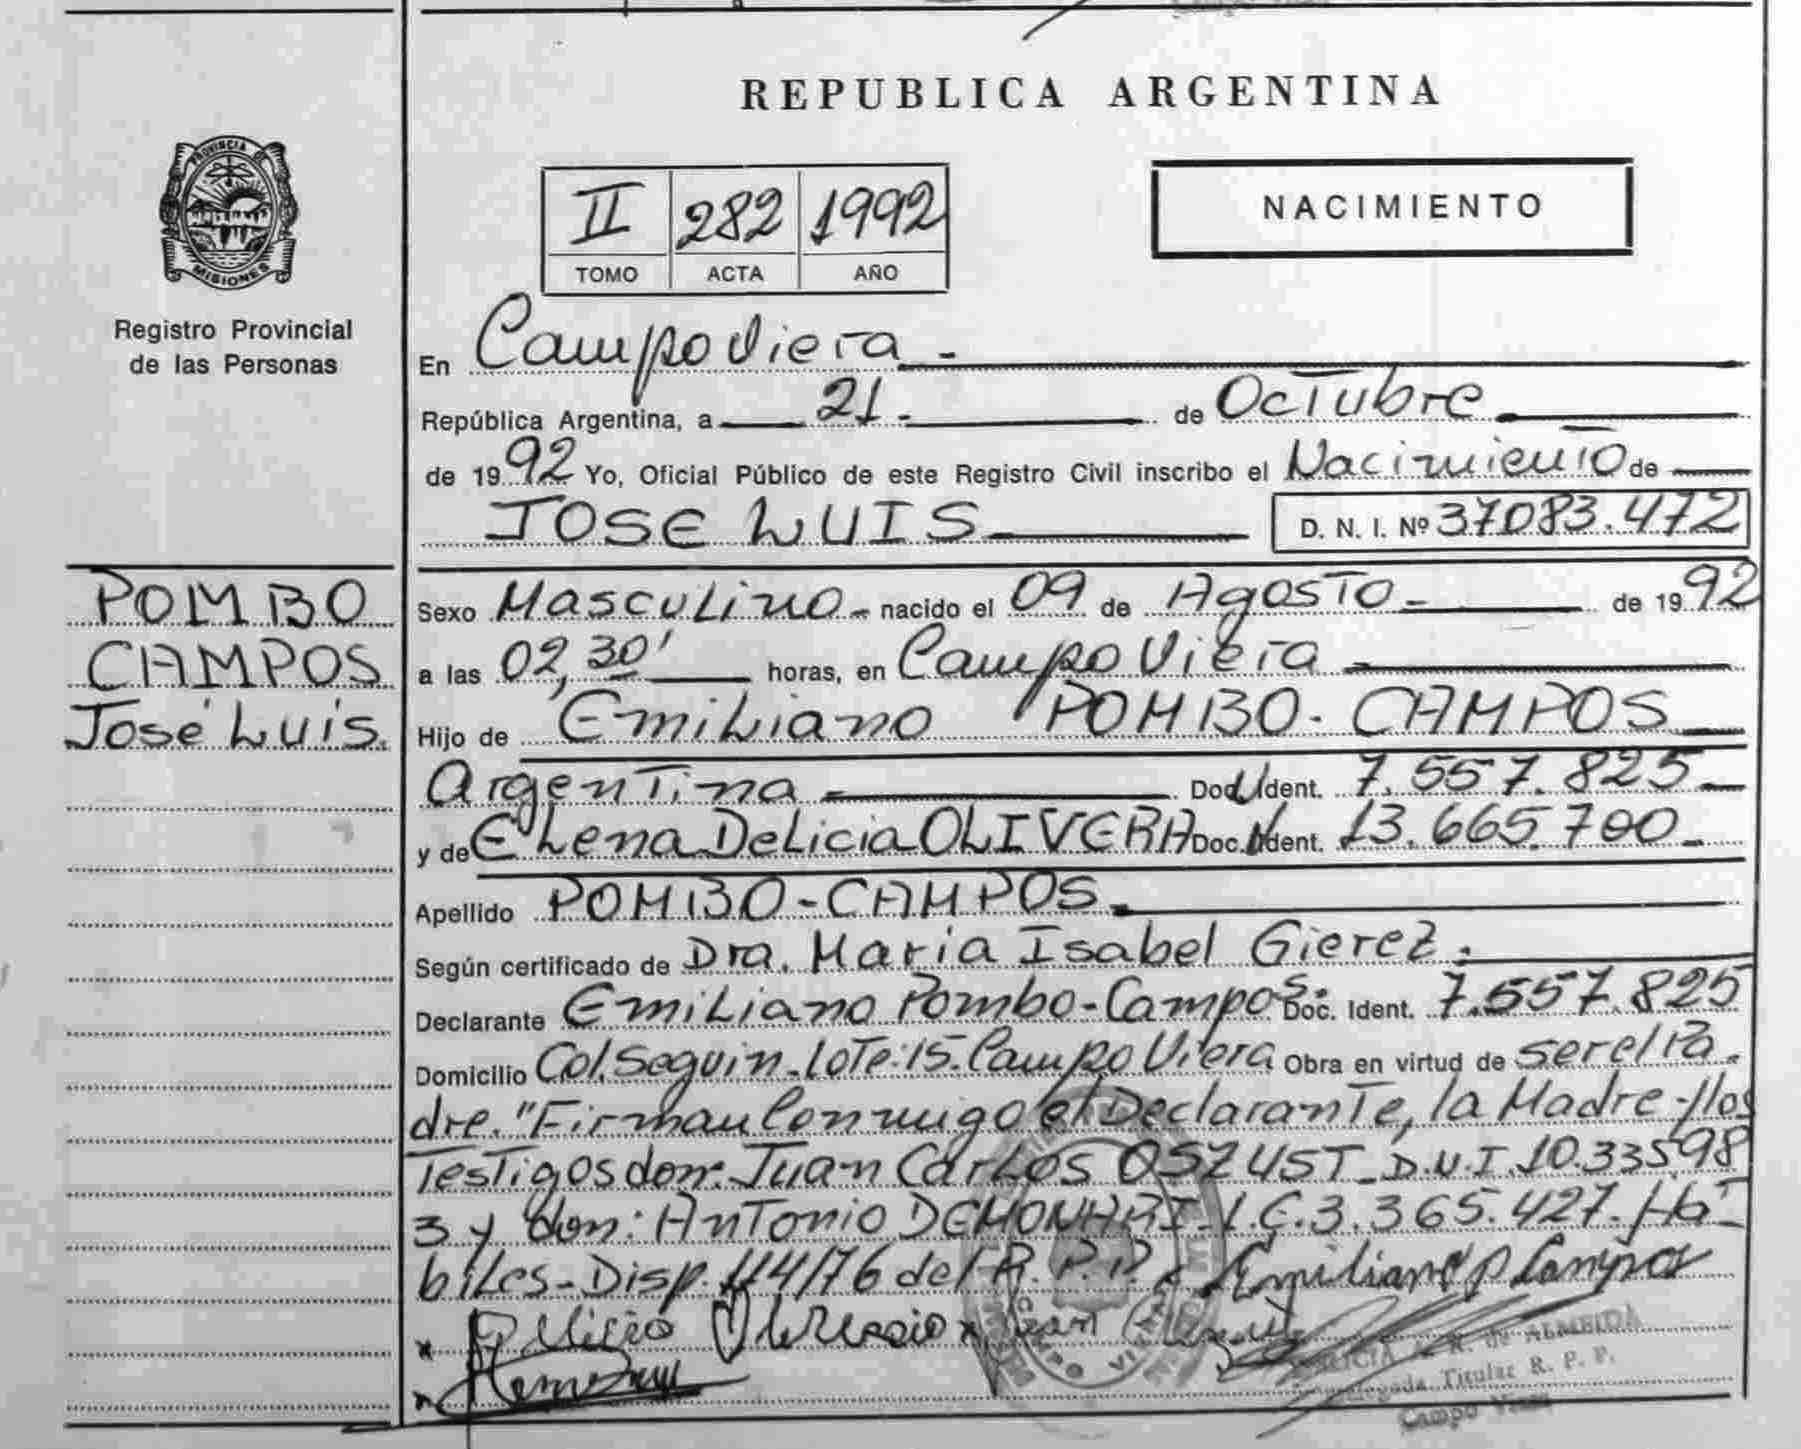 REPUBLICA ARGENTINA
PROVINCIA DE
MISIONES
Registro Provincial
de las Personas
II 282 1992
TOMO ACTA AÑO
NACIMIENTO
En Campo Viera -
República Argentina, a 21. de Octubre
de 1992 Yo, Oficial Público de este Registro Civil inscribo el Nacimiento de
JOSE LUIS D. N. I. Nº 37083.472
POMBO
CAMPOS
José Luis.
Sexo Masculino - nacido el 09 de Agosto - de 1992
a las 02,30' horas, en Campo Viera
Hijo de Emiliano POMBO - CAMPOS
Argentina Doc. Ident. 7.557.825
y de Elena Delicia OLIVERA Doc. Ident. 13.665.700
Apellido POMBO-CAMPOS
Según certificado de Dra. Maria Isabel Gierez.
Declarante Emiliano Pombo-Campos. Doc. Ident. 7.557.825
Domicilio Col. Seguin - Lote: 15. Campo Viera Obra en virtud de ser el Pa
dre. "Firman Conmigo el Declarante, la Madre y los
Testigos don: Juan Carlos OSZUST D.N.I. 10.33598
3 y don: Antonio DEMONHARI L.E. 3.365.427. Há
biles - Disp. 114/76 del R.P.P. Emiliano P Campos
x
x
R. de ALMEIDA
Delegada Titular R. P. P.
Campo Viera